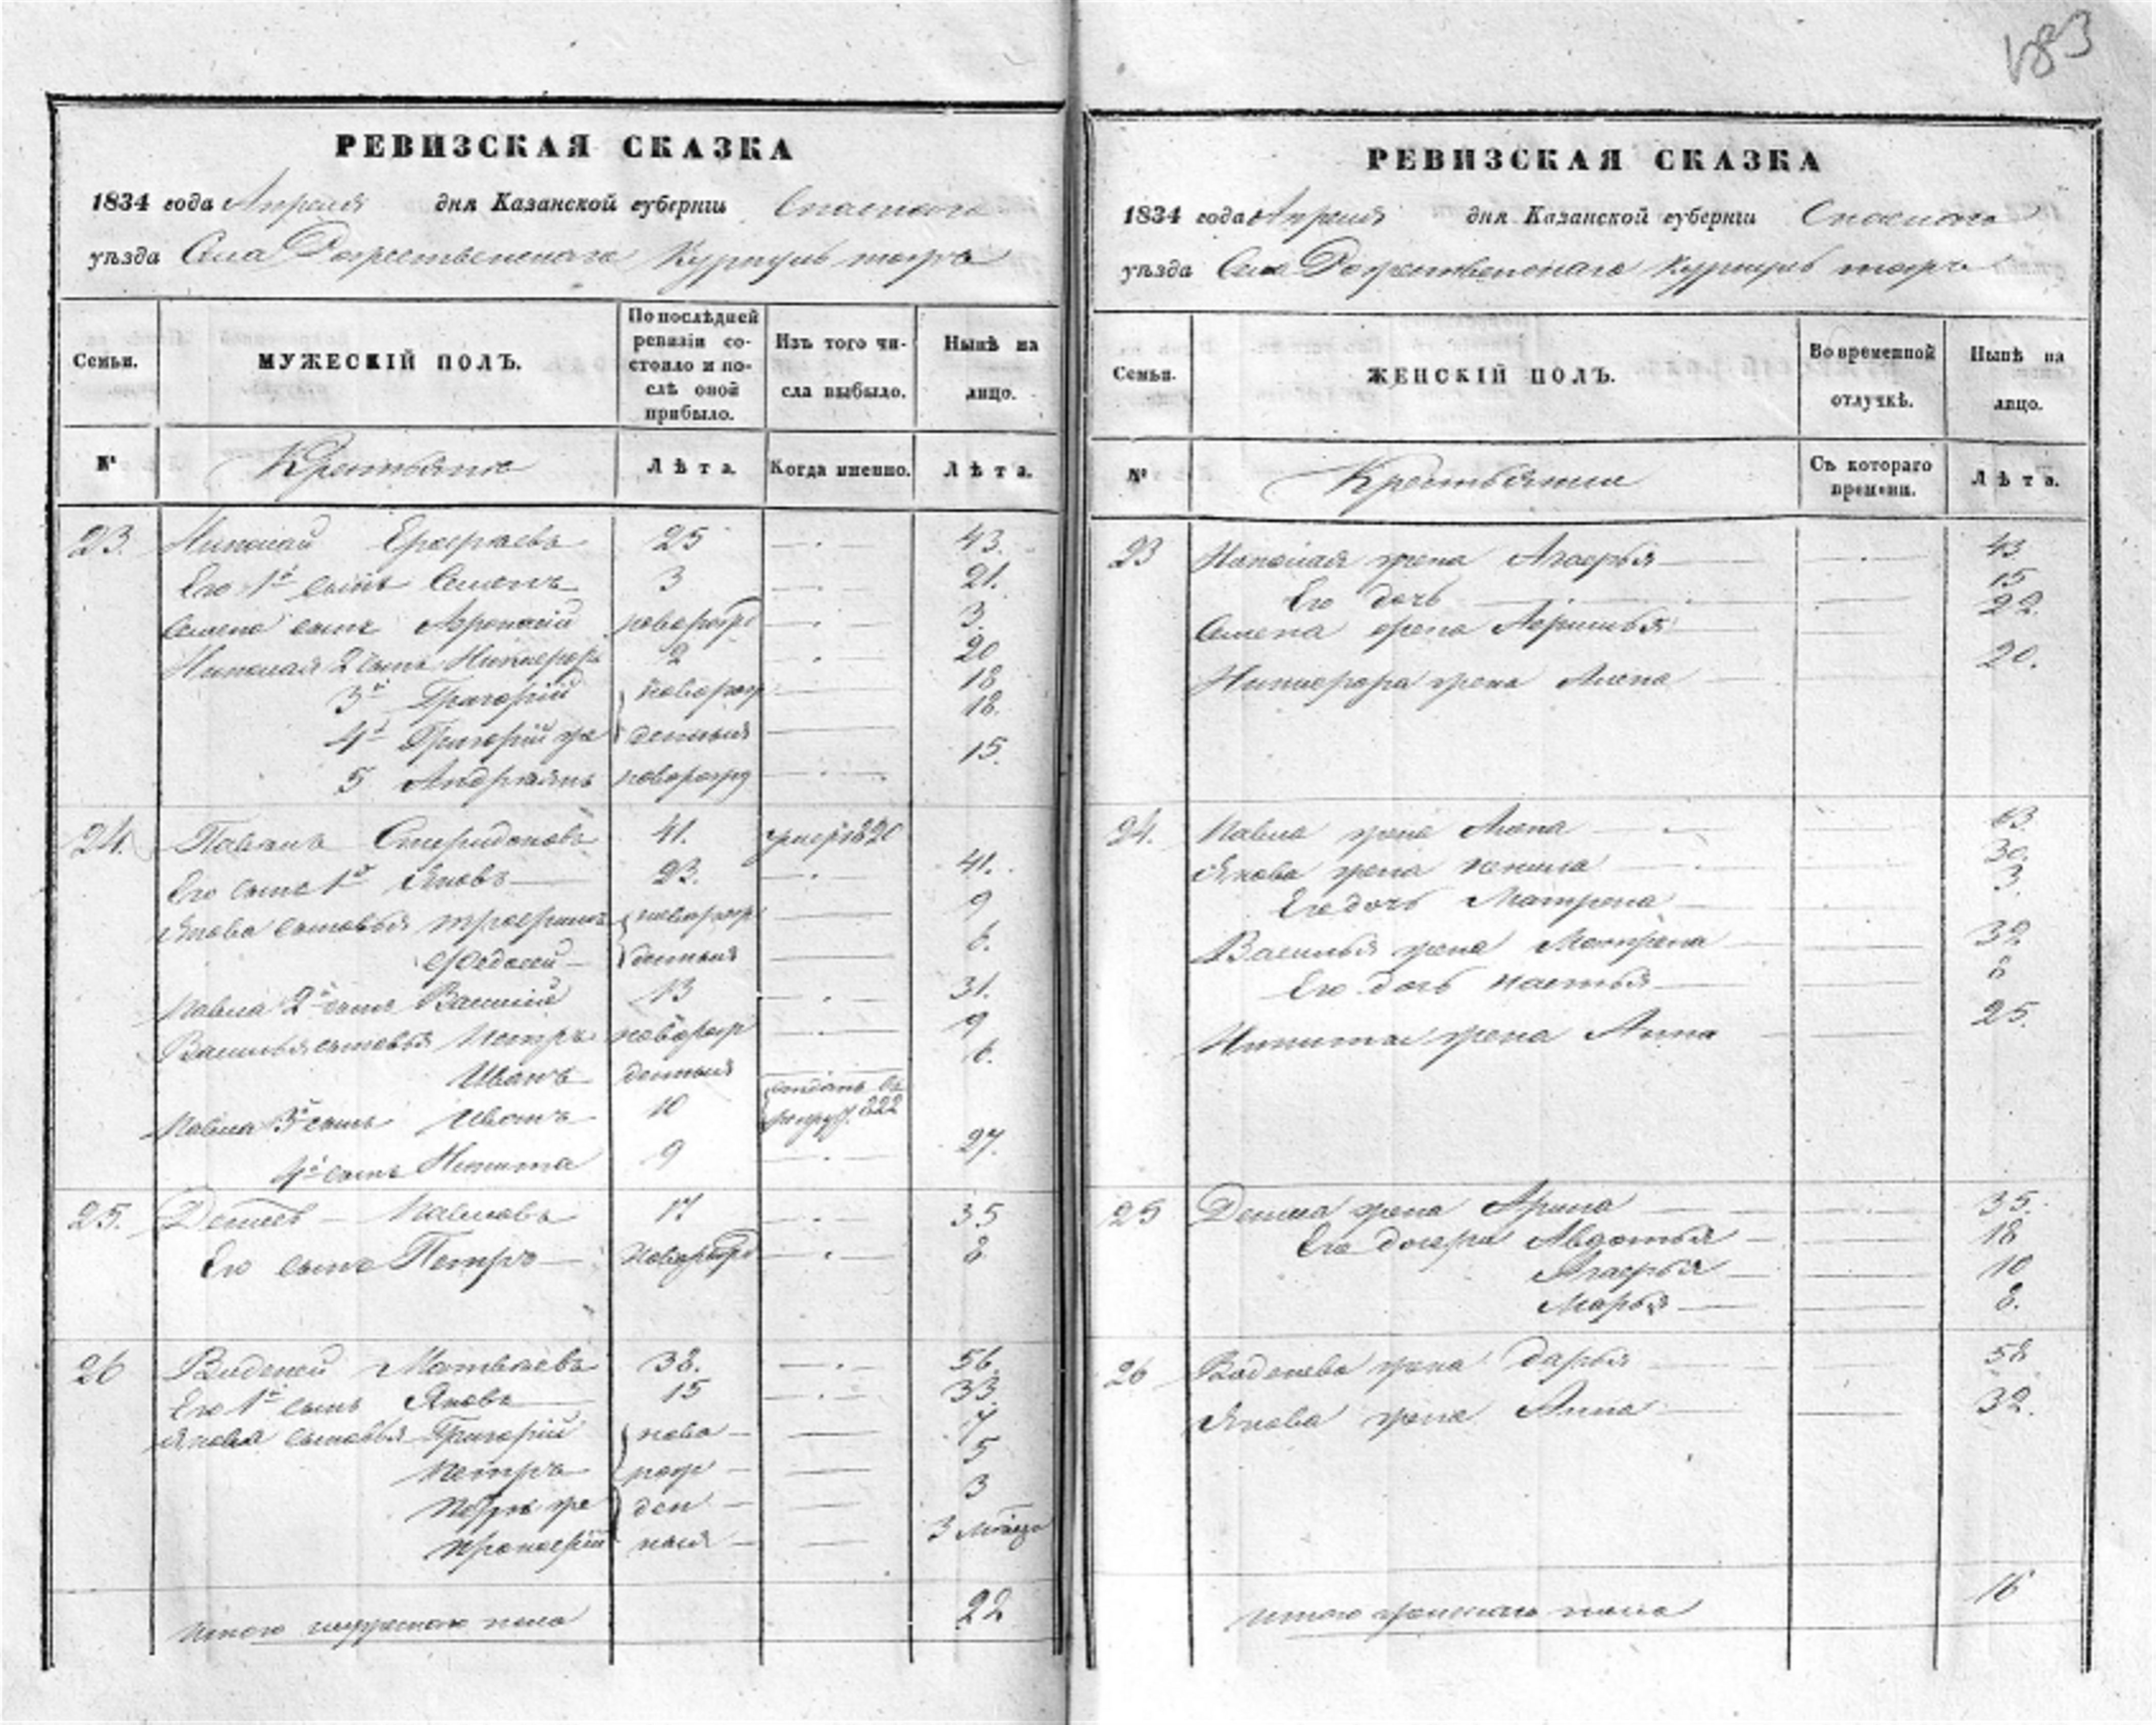 183
РЕВИЗСКАЯ СКАЗКА
1834 года Апреля дня Казанской губерніи Спаскаго
уѣзда Села Рожественскаго Куркуль тожъ
Семьи.
МУЖЕСКІЙ ПОЛЪ.
По послѣдней
ревизіи со-
стояло и по-
слѣ оной
прибыло.
Изъ того чи-
сла выбыло.
Нынѣ на
лицо.
№
Крестьяне
Лѣта.
Когда именно.
Лѣта.
23. Николай 25 43.
Его 1й сынъ Семенъ 3 21.
Семена сынъ Афонасій новорожд 3.
Николая 2 сынъ Никифоръ 2 20
3й Григорій новорож 18
4й Григорій же денныя 18.
5 Андреянъ новорожд 15
24. Павелъ Спиридоновъ 41. умеръ 1820
Его сынъ 1й Яковъ 23. 41.
Якова сыновья Трофимъ новорож 9
Федосей денныя 6.
Павла 2й сынъ Василій 13 31.
Василья сыновья Петръ новорож 9
Иванъ денныя 6.
Павла 3й сынъ Иванъ 10 отданъ въ рекруты 822
4й сынъ Никита 9 27.
25. Денисъ Павловъ 17 35
Его сынъ Петръ новорожд 8
26 Матвѣевъ 38. 56.
Его 1й сынъ Яковъ 15 33.
Якова сыновья Григорій ново 7
Петръ рож 5
Петръ же ден 3
Прокофій ныя 3 мѣсяц
Итого мужескаго пола 22
РЕВИЗСКАЯ СКАЗКА
1834 года Апреля дня Казанской губерніи Спаскаго
уѣзда Села Рожественскаго Куркуль тожъ
Семьи.
ЖЕНСКІЙ ПОЛЪ.
Во временной
отлучкѣ.
Нынѣ на
лицо.
№
Крестьянки
Съ котораго
времени.
Лѣта.
23 Николая жена Агафья 43
Его дочь 15
Семена жена 22.
Никифора жена Алена 20.
24. Павла жена Анна 63.
Якова жена 30.
Его дочь Матрена 3.
Василья жена Матрена 32
Его дочь Настья 8
Никиты жена Анна 25.
25 Дениса жена Арина 35.
Его дочери Авдотья 18
Агафья 10
Марья 8.
26 жена Дарья 58
Якова жена Анна 32.
Итого женскаго пола 16